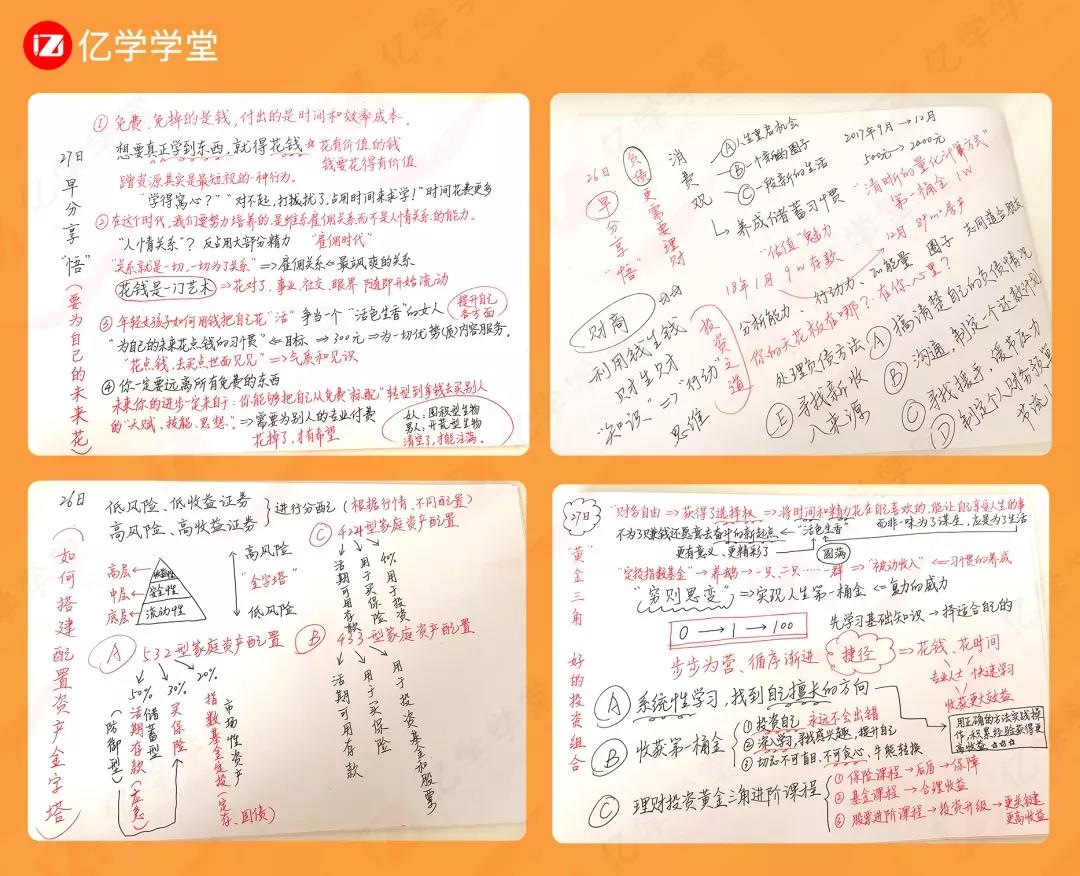 亿学学堂
27日
早分享“悟”(要为自己的未来花)
① 免费、免掉的是钱,付出的是时间和效率成本。
想要真正学到东西,就得花钱
花有价值的钱
钱要花得有价值
蹭资源其实是最短视的一种行为。
“学得窝心?” “对不起,打扰扰了,占用时间来求学!”时间花费更多
② 在这个时代,我们要努力培养的是维系雇佣关系而不是人情关系的能力。
“人情关系”? 反占用大部分精力 “雇佣时代”
“关系就是一切,一切为了关系” ⇒雇佣关系⇐最飒爽的关系
花钱是一门艺术 ⇒花对了,事业、社交、眼界 随即开始流动
③ 年轻女孩子如何用钱把自己花“活” 争当一个“活色生香”的女人
提升自己各方面
“为自己的未来花点钱的习惯” ⇐目标 ⇒300元⇒为一切优势(质)内容服务。
“花点钱,去买点世面见见”⇒气质和见识
④ 你一定要远离所有免费的东西
未来你的进步一定来自于:你能够把自己从免费“标配”转型到拿钱去买别人
的“天赋、技能、思想”。⇒需要为别人的专业付费
花掉了,才有希望
女人:囤积型生物
男人:开荒型生物
清空了,才能注满。
26日
早分享“悟”
负债更需要理财
消费观
Ⓐ人生重启机会
Ⓑ一个新的圈子
Ⓒ一段新的生活
养成储蓄习惯
2017年9月→12月
500元→2000元
“清晰的量化计算方式”
第一桶金 1W
“估值”魅力
18年1月 9W存款
12月 89m²房产
行动力、和能量 圈子
分析能力、
你的天花板在哪?在你心里?
投资之道
财商
利用钱生钱
只才生只才
“知识”⇒“行动”
思维
处理负债方法
Ⓐ 搞清楚自己的负债情况
Ⓑ 沟通,制定个还款计划
Ⓒ 寻找援手,缓解压力
Ⓓ 制定个人财务预算
节流
Ⓔ 寻找新收入来源
26日
(如何搭建配置资产金字塔)
低风险、低收益证券
高风险、高收益证券
进行分配(根据行情、不同配置)
高层← 收益性
中层← 安全性
底层← 流动性
高风险
“金字塔”
低风险
Ⓐ 532型家庭资产配置
50% 储蓄型活期存款(应急)
(防御型)
30% 买保险
20% 指数基金定投(定存、国债)
市场性资产
Ⓑ 433型家庭资产配置
活期可用存款
用于买保险
用于投资基金和股票
Ⓒ 424型家庭资产配置
活期可用存款
用于买保险
40%用于投资
27日
“黄金三角” 好的投资组合
“财务自由⇒获得了选择权 ⇒将时间和精力花在自己喜欢的,能让自己享受人生的事
而非一味为了谋生,应是为了生活
不为了赚钱还愿意去奋斗的新起点←“活色生香”
更有意义、更精彩了
圆满
“定投指数基金”→养鹅→一只、二只……群⇒“被动收入”⇐习惯的养成
“穷则思变” ⇒实现人生第一桶金 ⇐复利的威力
0→1→100
先学习基础知识→择适合自己的
步步为营、循序渐进
捷径⇒花钱、花时间
专业人士 快速学习
收获更大效益
Ⓐ 系统性学习,找到自己擅长的方向
用正确的方法实践操作,积累经验获得更高收益
Ⓑ 收获第一桶金
① 投资自己 永远不会出错
② 深入学习,寻找感兴趣、提升自己
③ 切忌不可盲目、不可贪心、牛熊转换
Ⓒ 理财投资黄金三角进阶课程
① 保险课程→后盾→保障
② 基金课程→合理收益
③ 股票进阶课程→投资升级→更关键更高收益